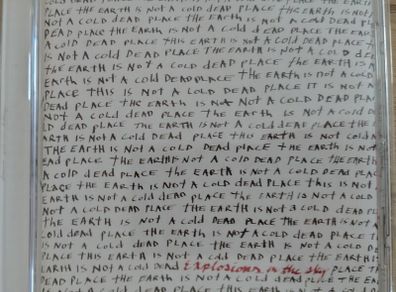 COLD DEAD PLACE THE EARTH IS NOT A COLD DEAD PLACE THE EARTH IS NOT
PLACE THE EARTH IS NOT A COLD DEAD PLACE THE EARTH IS NOT
DEAD PLACE THE EARTH IS NOT A COLD DEAD PLACE THE EAR
A COLD DEAD PLACE THIS EARTH IS NOT A COLD DEAD PLACE
IS NOT A COLD DEAD PLACE THE EARTH IS NOT A COLD DE
THE EARTH IS NOT A COLD DEAD PLACE THE EARTH IS
EARTH IS NOT A COLD DEAD PLACE THE EARTH IS NOT A COLD
PLACE THIS IS NOT A COLD DEAD PLACE IT IS NOT A
DEAD PLACE THE EARTH IS NOT A COLD DEAD PLA
NOT A COLD DEAD PLACE THE EARTH IS NOT A COLD D
LD DEAD PLACE THE EARTH IS NOT A COLD DEAD PLACE THE
ARTH IS NOT A COLD DEAD PLACE THIS EARTH IS NOT COLD
THE EARTH IS NOT A COLD DEAD PLACE THE EARTH IS NOT
EAD PLACE THE EARTH IS NOT A COLD DEAD PLACE THE EARTH
A COLD DEAD PLACE THE EARTH IS NOT A COLD DEAD PLACE
PLACE THE EARTH IS NOT A COLD DEAD PLACE THIS IS NOT
EARTH IS NOT A COLD DEAD PLACE THE EARTH IS NOT A COLD
NOT A COLD DEAD PLACE THE EARTH IS NOT A COLD DEAD PL
THE EARTH IS NOT A COLD DEAD PLACE THE EARTH IS NOT
COLD DEAD PLACE THE EARTH IS NOT A COLD DEAD PLACE T
IS NOT A COLD DEAD PLACE THE EARTH IS NOT A COLD DE
PLACE THIS EARTH IS NOT A COLD DEAD PLACE THE EARTH IS
EARTH IS NOT A COLD DEAD Explosions in the Sky PLACE TH
DEAD PLACE THE EARTH IS NOT A COLD DEAD PLACE THE EA
IS NOT A COLD DEAD PLACE THE EARTH IS NOT A COLD DEAD